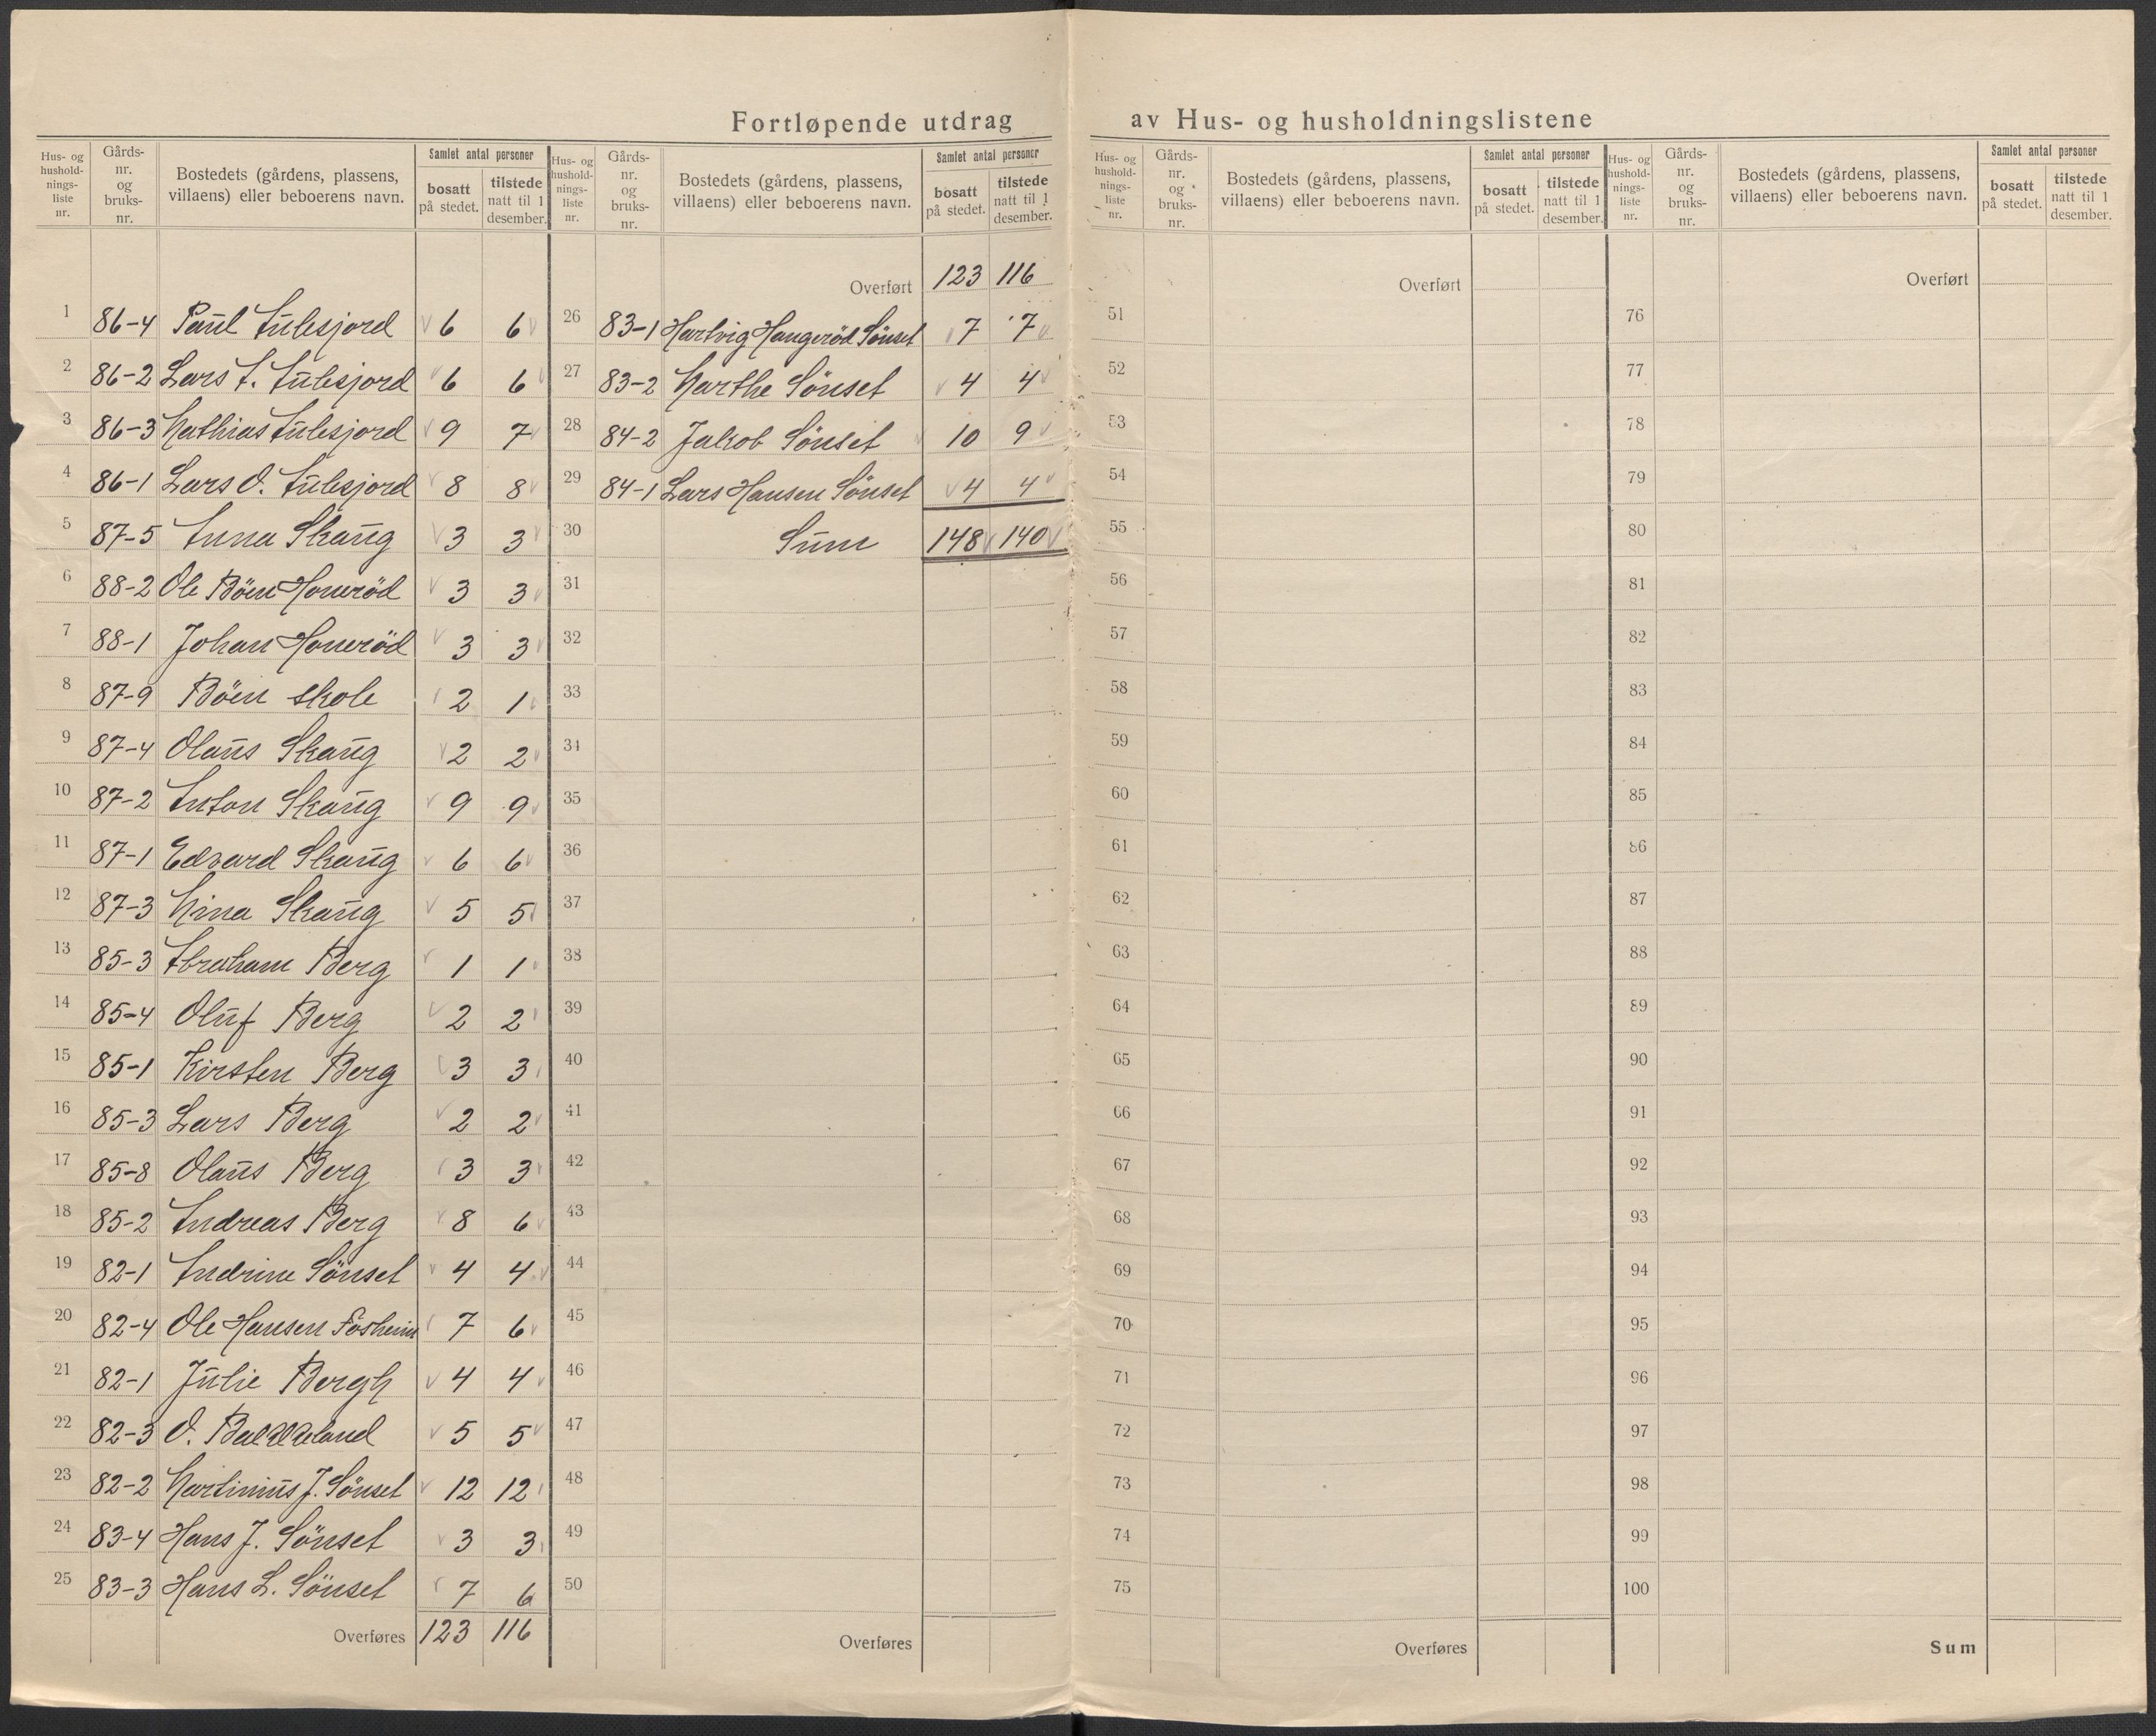 Fortløpende utdrag av Hus- og husholdningslistene
Hus- og husholdnings-liste nr. Gårds-nr. og bruks-nr. Bostedets (gårdens, plassens, villaens) eller beboerens navn. Samlet antal personer bosatt på stedet. tilstede natt til 1 desember.
1 86-4 Paul Aulesjord 6 6
2 86-2 Lars A. Aulesjord 6 6
3 86-3 Mathias Aulesjord 9 7
4 86-1 Lars O. Aulesjord 8 8
5 87-5 Anna Skaug 3 3
6 88-2 Ole Böen Honeröd 3 3
7 88-1 Johan Honeröd 3 3
8 87-9 Böen skole 2 1
9 87-4 Olaus Skaug 2 2
10 87-2 Anton Skaug 9 9
11 87-1 Edvard Skaug 6 6
12 87-3 Mina Skaug 5 5
13 85-3 Abraham Berg 1 1
14 85-4 Oluf Berg 2 2
15 85-1 Kirsten Berg 3 3
16 85-3 Lars Berg 2 2
17 85-8 Olaus Berg 3 3
18 85-2 Andreas Berg 8 6
19 82-1 Andrine Sönset 4 4
20 82-4 Ole Hansen Fosheim 7 6
21 82-1 Julie Bergh 4 4
22 82-3 O. 5 5
23 82-2 Martinius J. Sönset 12 12
24 83-4 Hans J. Sönset 3 3
25 83-3 Hans L. Sönset 7 6
Overføres 123 116
Hus- og husholdnings-liste nr. Gårds-nr. og bruks-nr. Bostedets (gårdens, plassens, villaens) eller beboerens navn. Samlet antal personer bosatt på stedet. tilstede natt til 1 desember.
Overført 123 116
26 83-1 Hartvig Haugeröd Sönset 7 7
27 83-2 Marthe Sönset 4 4
28 84-2 Jakob Sönset 10 9
29 84-1 Lars Hansen Sönset 4 4
30 Sum 148 140
31
32
33
34
35
36
37
38
39
40
41
42
43
44
45
46
47
48
49
50
Overføres
Hus- og husholdnings-liste nr. Gårds-nr. og bruks-nr. Bostedets (gårdens, plassens, villaens) eller beboerens navn. Samlet antal personer bosatt på stedet. tilstede natt til 1 desember.
Overført
51
52
53
54
55
56
57
58
59
60
61
62
63
64
65
66
67
68
69
70
71
72
73
74
75
Overføres
Hus- og husholdnings-liste nr. Gårds-nr. og bruks-nr. Bostedets (gårdens, plassens, villaens) eller beboerens navn. Samlet antal personer bosatt på stedet. tilstede natt til 1 desember.
Overført
76
77
78
79
80
81
82
83
84
85
86
87
88
89
90
91
92
93
94
95
96
97
98
99
100
Sum